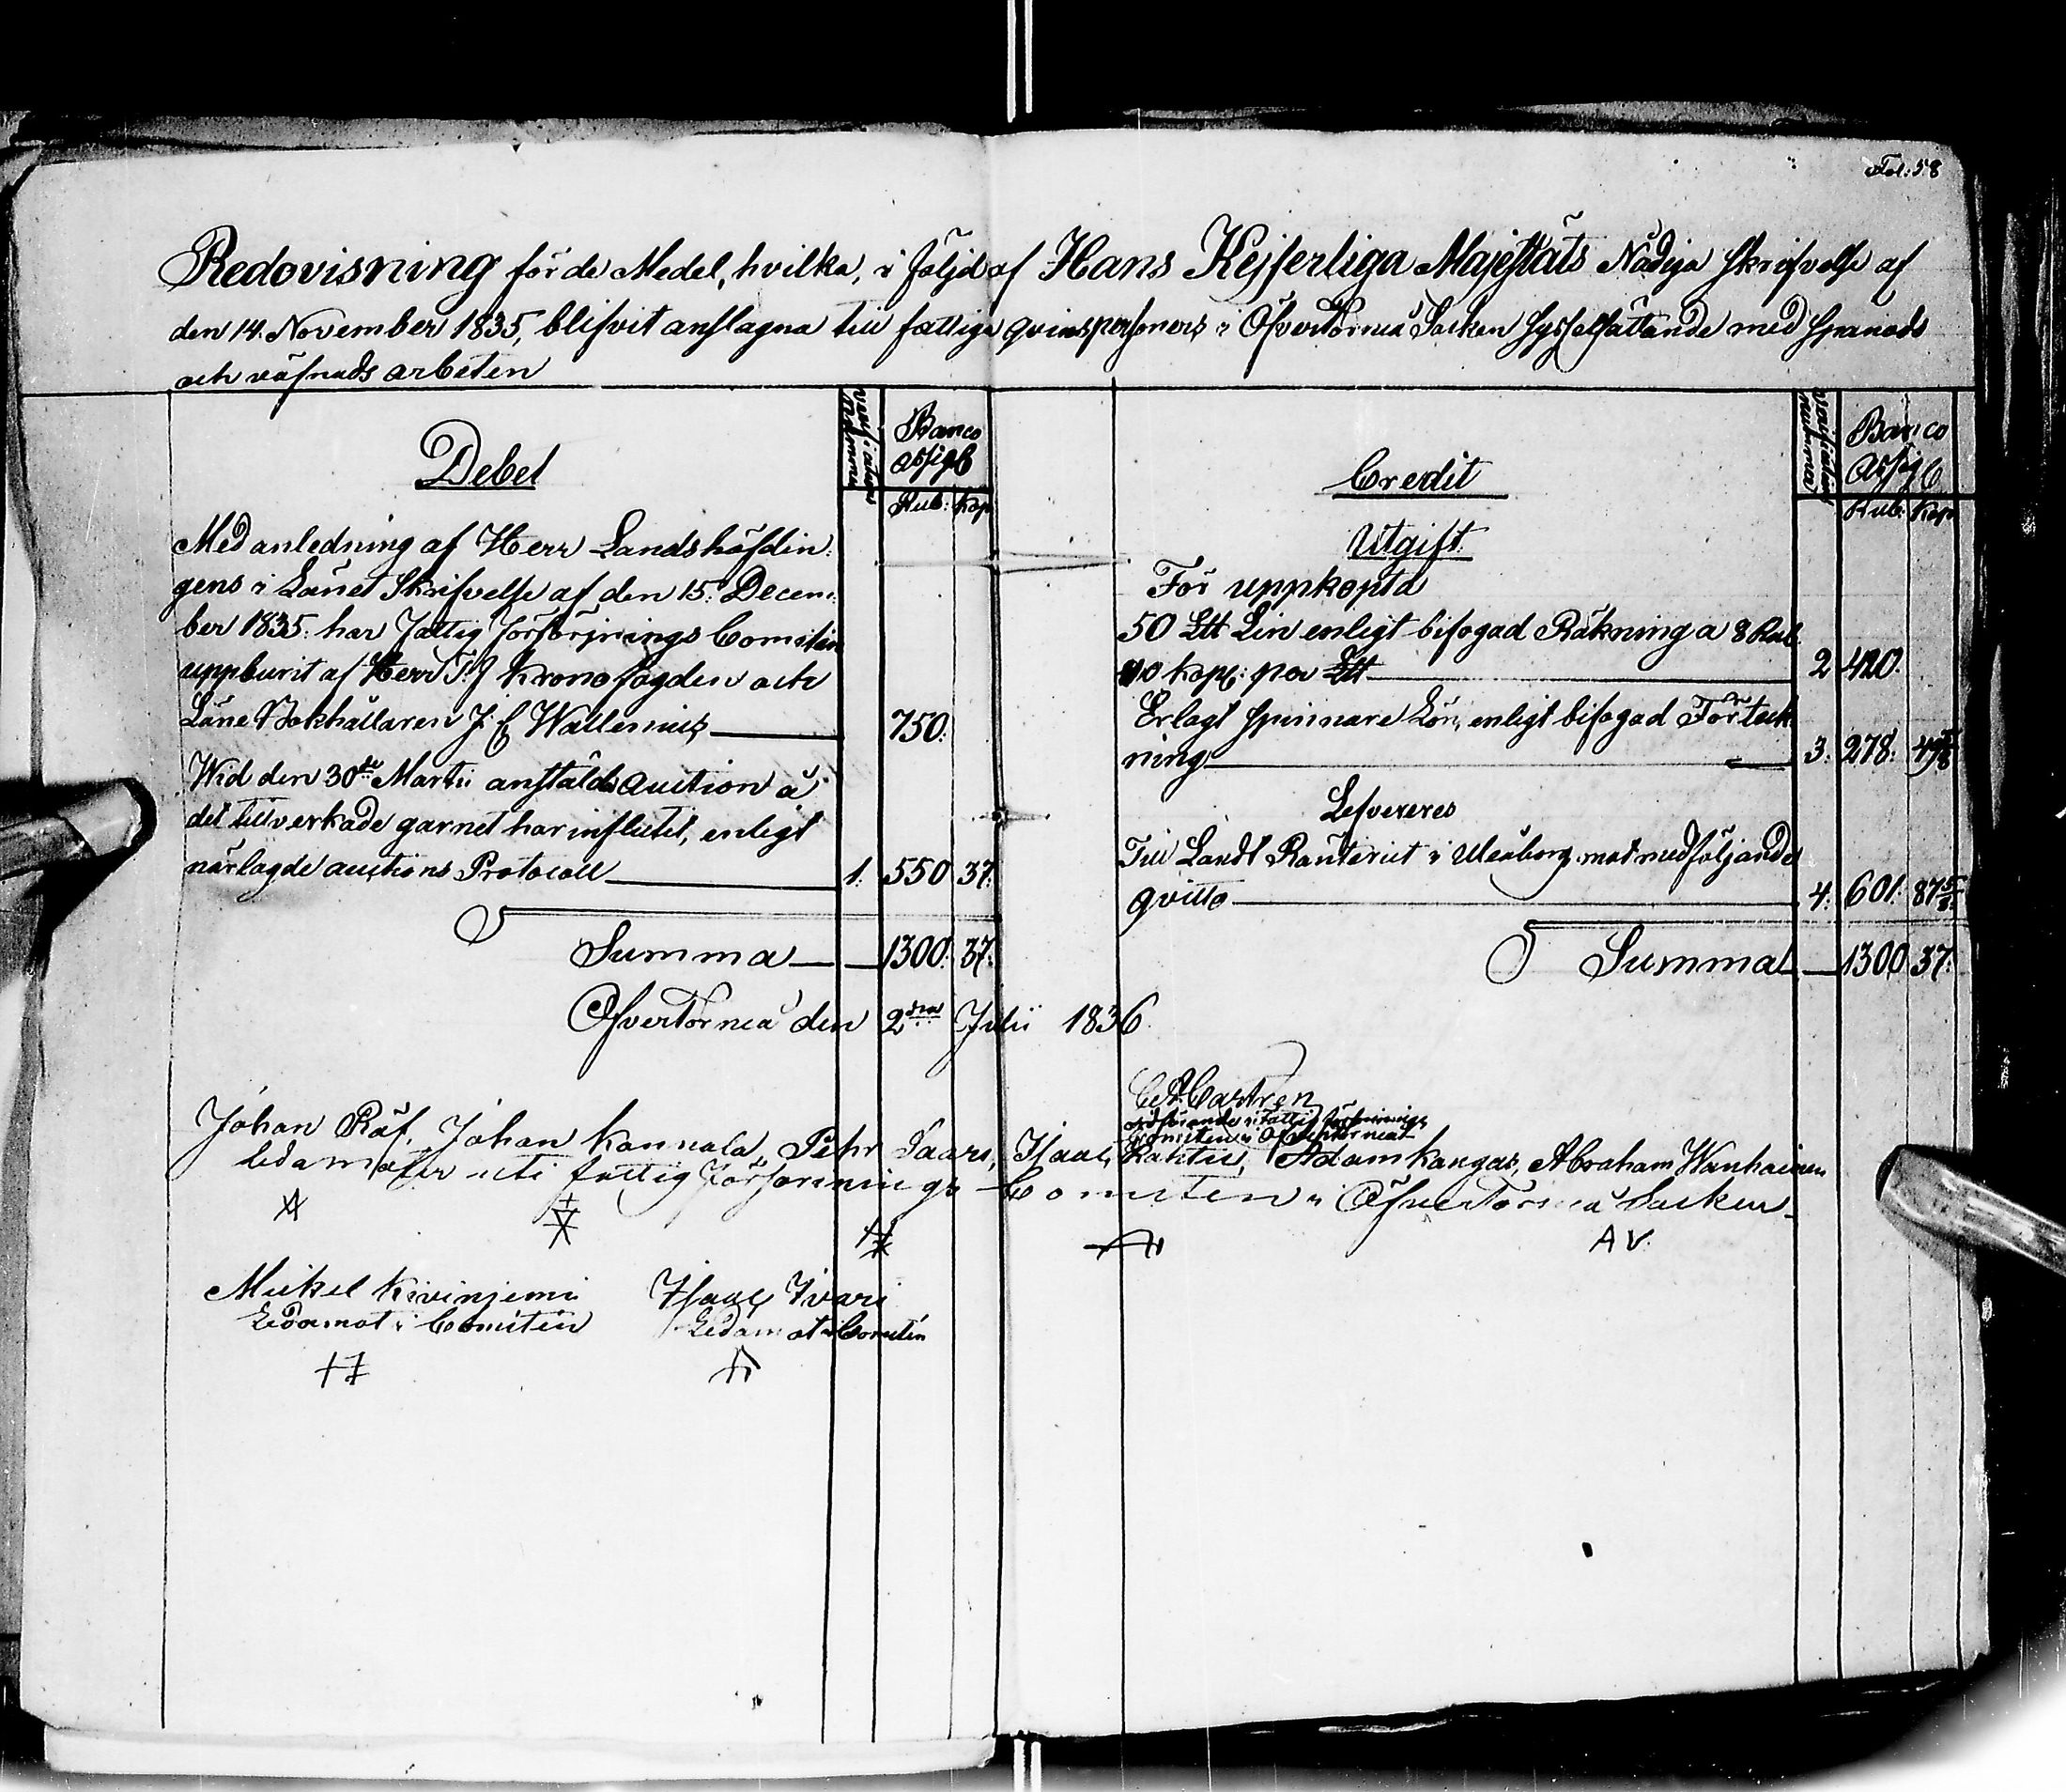 Fol: 58
Redovisning för de Medel, hvilka, i följd af Hans Kejserliga Majestäts Nådiga Skrifvelse af
den 14. November 1835, blifvit anslagna till fattiga qvinspersoners i ÖfverTorneå Socken sysselsättande med spånads
och väfnads arbeten
Debet
Verifications Nummer
Banco
Assigt
Rub: Kop
Med anledning af Herr Landshöfdin:
gens i Länet Skrifvelse af den 15: Decem:
ber 1835: har Fattig försörjnings Comitén
uppburit af Herr T.f Kronofogden och
Läne Bokhållaren J. E Wallenius 750:
Wid den 30de Martii anstälde auction å
det tillverkade garnet har influtit, enligt
närlagde auctions Protocoll 1: 550 37:
Summa 1300: 37:
Credit
Verifications nummer
Banco
Assigt
Rub: Kop
Utgift
För uppköpta
50 Ltt Lin enligt bifogad Räkning a 8 Rub
40 kop: per Ltt 2 420.
Erlagt spinnare Lön, enligt bifogad Förteck
ning 3: 278: 49 3/8
Lefvereres
Till Landt Ränteriet i Uleåborg mot medföljande
qvitto 4: 601: 87 5/8
Summa 1300 37:
ÖfverTorneå den 2dra Julii 1836.
C A Castren
ordförande i Fattig försörjnings
Comiten i ÖfverTorneå
Johan Räf, Johan Kannala, Pehr Saari, Isaac Rantu, Adam Kangas, Abraham Wanhainen
Ledamöter uti fattig Försörjnings Comiten i ÖfverTorneå Socken
A V.
Mickel Kivinjemi Isaac Ivari
Ledamot i Comiten Ledamot i Comiten